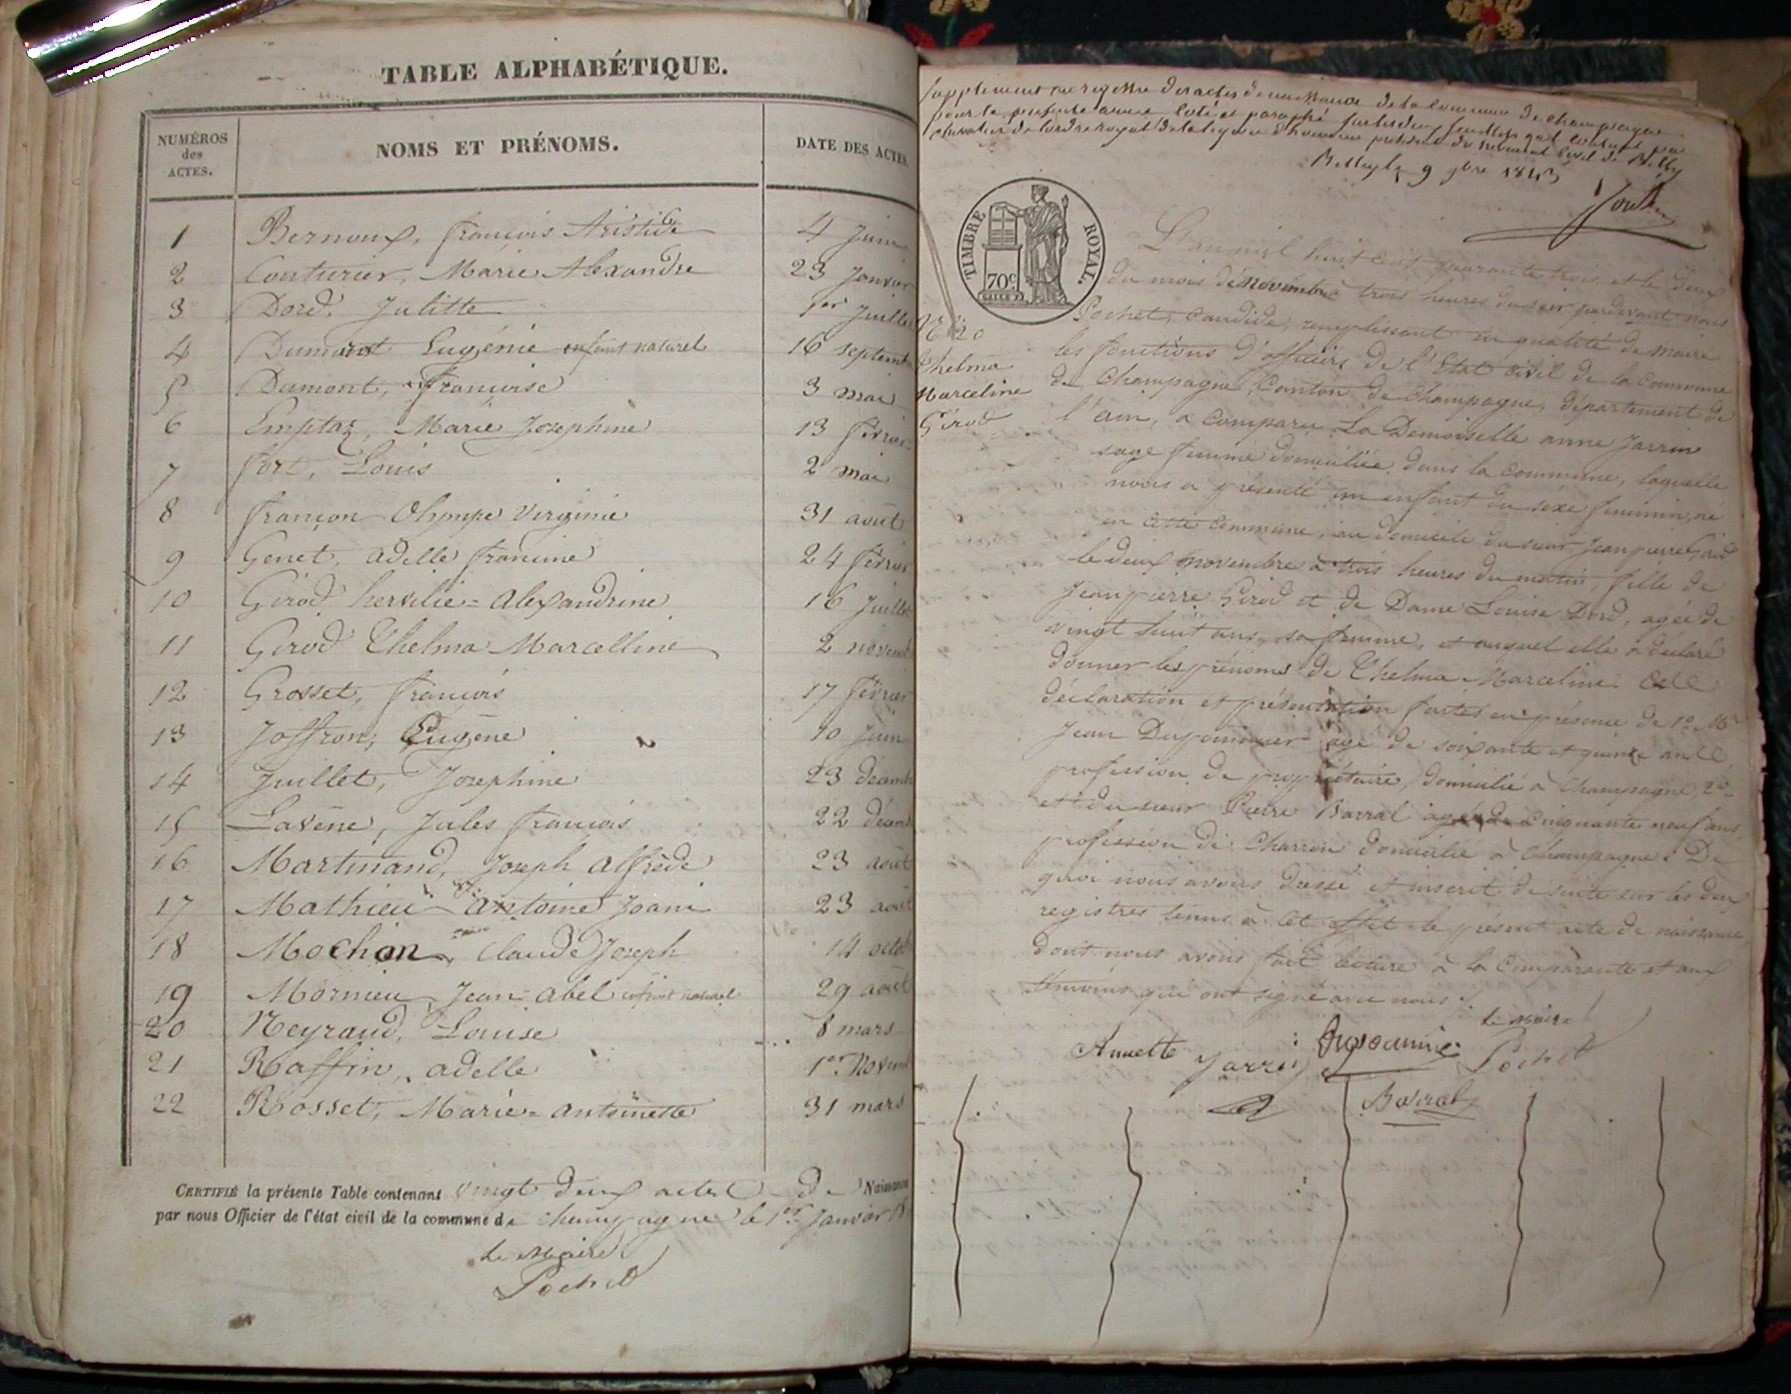 TABLE ALPHABÉTIQUE.
NUMÉROS des ACTES. NOMS ET PRÉNOMS. DATE DES ACTES.
1 Bernoux, françois Aristide 4 Juin
2 Couturier, Marie Alexandre 23 Janvier
3 Dord, Julitte 1er Juillet
4 Dumont Eugénie enfant naturel 16 septemb
5 Dumont, Françoise 3 mai
6 Emptaz, Marie Josephine 13 février
7 fort, Louis 2 mai
8 françon Olympe Virginie 31 août
9 Genet, adelle francine 24 février
10 Girod, hersilie = alexandrine 16 Juillet
11 Girod Thelma Marcelline 2 novemb
12 Grosset, françois 17 février
13 Joffron, Eugène 10 Juin
14 Juillet, Josephine 23 décemb
15 Lavêne, Jules françois 22 décem
16 Martinand, Joseph alfrède 23 août
17 Mathieu antoine Joani 23 août
18 Mochon, Claude Joseph 14 octob
19 Mornieu, Jean = abel enfant naturel 29 août
20 Neyraud, Louise 8 mars
21 Raffin, adelle 1er Novem
22 Rosset, Marie = antoinette 31 mars
CERTIFIÉ la présente Table contenant vingt deux actes de Naissance
par nous Officier de l'état civil de la commune de champagne le 1er Janvier 18
le Maire
Pochet
Supplément au registre des actes de naissance de la commune de champagne
pour la présente année coté et paraphé feuillets qu'il contient par
chevalier de l'ordre royal de la légion d'honneur président du tribunal civil de Belley
Belley le 9 9bre 1843
TIMBRE ROYAL.
70c
N° 20
Thelma
Marceline
Girod
L'an mil huit cent quarante trois et le deux
du mois de Novembre à trois heures du soir pardevant nous
Pochet, Candide, remplissant en qualité de maire
les fonctions d'officier de l'Etat civil de la commune
de Champagne, Canton de Champagne, département de
l'ain, a comparu La Demoiselle anne Jarrin
sage femme domiciliée dans la commune, laquelle
nous a présenté un enfant du sexe féminin, né
en cette commune, au domicile du sieur Jean pierre Girod
le deux novembre à trois heures du matin, fille de
Jean pierre Girod et de Dame Louise Dord, agée de
vingt huit ans, sa femme, et auquel elle a déclaré
donner les prénoms de Thelma Marceline
déclaration et présentation faites en présence de 1° Mr
Jean agé de soixante et quinze ans
profession de propriétaire, domicilié à Champagne, 2°
et du sieur Pierre Barral agé de cinquante neuf ans
profession de Charron domicilié à Champagne De
quoi nous avons dressé et inscrit de suite sur les deux
registres tenus à cet effet le présent acte de naissance
dont nous avons fait lecture à la Comparante et aux
témoins qui ont signé avec nous
le Maire
Annette Jarrin Pochet
Barral